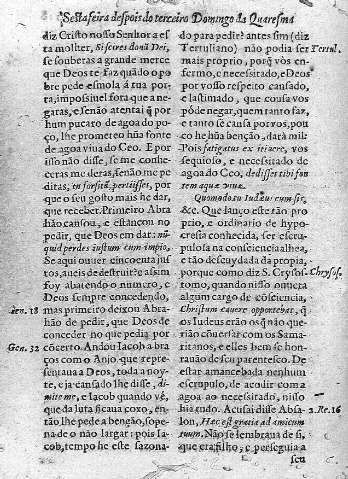 Sesta feira despois do terceiro Domingo da Quaresma
diz Cristo nosso Senhor a es
ta molher, Si scires donũ Dei,
se souberas a grande merce
que Deos te faz quãdo o po
bre pede esmola á tua por
ta, impossiuel fora que a ne
garas, e senão atenta q̃ por
hum pucaro de agoa do po
ço, lhe prometeo hũa fonte
de agoa viua do Ceo. E por
isso não disse, se me conhe
ceras me deras, senão me pe
ditas, tu forsitã petijsses, por
que o seu gosto mais he dar,
que receber. Primeiro Abra
hão cansou, e estancou no
pedir, que Deos em dar: nũ
quid perdes iustum cum impio,
Se aqui ouuer cincoenta jus
tos, aueis de destruir? e assim
foy abatendo o numero, e
Deos sempre concedendo,
Gen. 18 mas primeiro deixou Abra-
hão de pedir, que Deos de
conceder no que pedia por
Gen. 32 cõcerto. Andou Iacob a bra
ços com o Anjo que repre-
sentaua a Deos, toda a noy-
te, e ja cansado lhe disse, di-
mite me, e Iacob quando vê,
que da luta ficaua coxo, en-
tão lhe pede a benção, so pe-
na de o não largar: pois Ia-
cob, tempo he este sazona-
do para pedir? antes sim (diz
Tertuliano) não podia ser Tertul.
mais proprio, porq̃ vòs en-
fermo, e necessitado, e Deos
por vosso respeito cansado,
e lastimado, que cousa vos
põde negar, quem tanto faz,
e tanto se cansa por vos, pou
co he hũa benção, dará mil:
Pois fatigatus ex itinere, vos
sequioso, e necessitado de
agoa do Ceo, dedisset tibi fon
tem aquæ viuæ.
Quomodo tu Iudæus cum sis,
&c. Que lanço este tão pro
prio, e ordinario de hypo-
cresia conhecida, ser escru-
pulosa na consciencia alhea,
e tão descuydada da propia,
porque como diz S. Crysos- Chrysos.
tomo, quando nisso ouuera
algum cargo de cõsciencia,
Christum cauere opportebat, q̃
os Iudeus erão os q̃ não que-
rião cõuersar com os Sama-
ritanos, e elles bem se hon-
rauão de seu parentesco. De
estar amancebada nenhum
escrupulo, de acodir com a
agoa ao necessitado, nisso
hia tudo. Acusai disse Absa- 2. Re. 16
lon, Hæc est gratia ad amicum
tuum. Não se lembraua de si,
que era filho, e perseguia a
seu